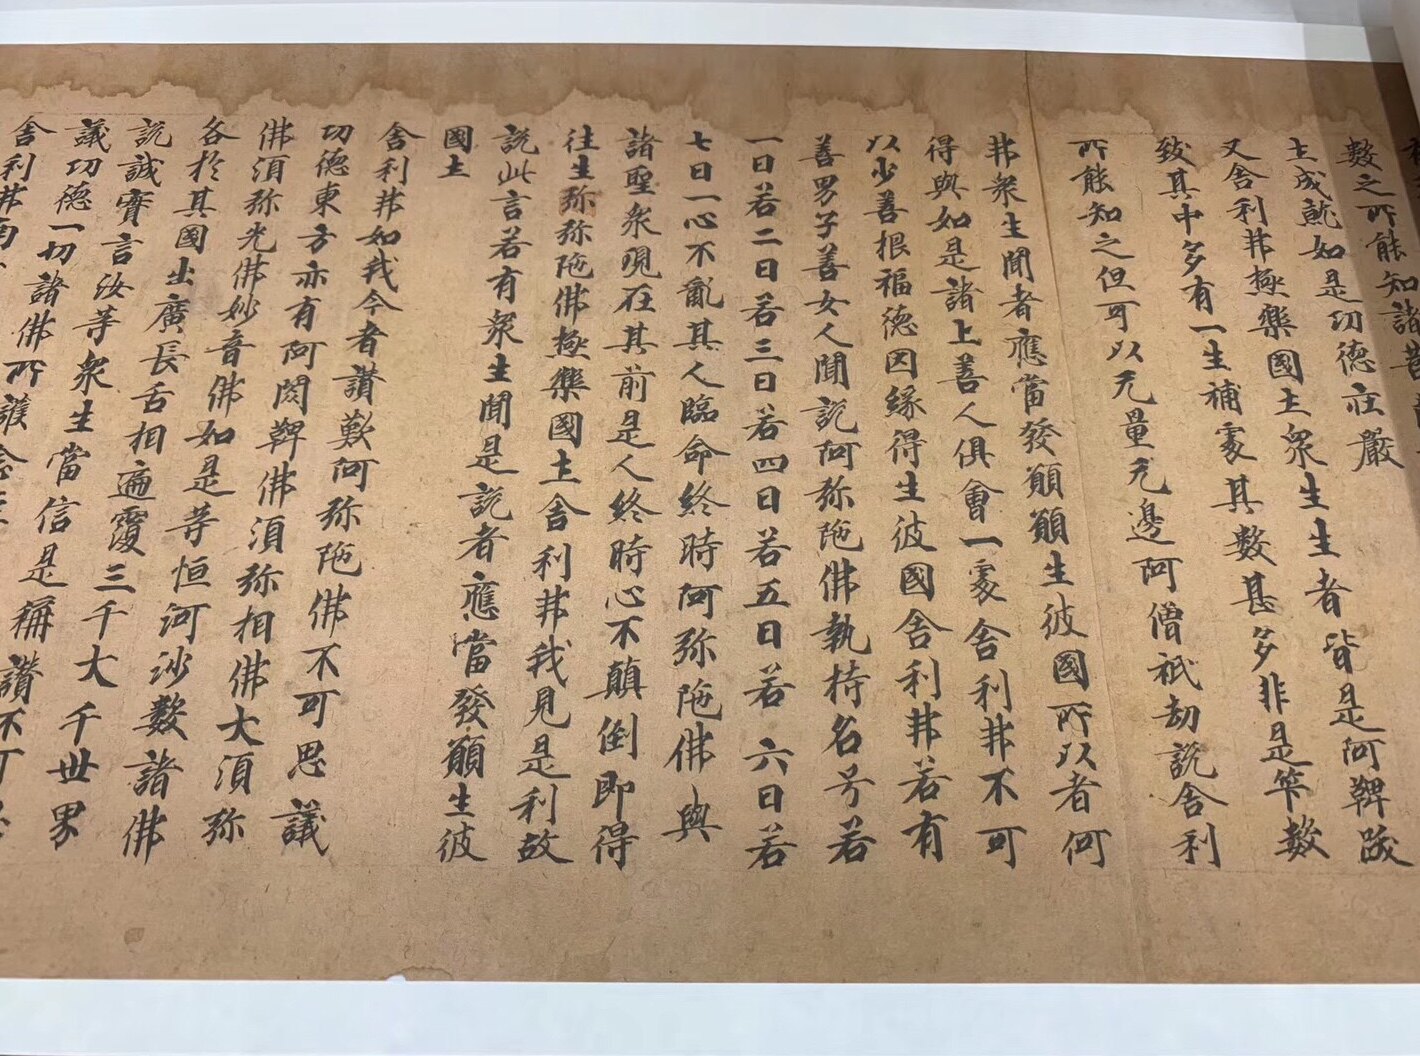 數之所能知諸菩
土成就如是功德莊嚴
又舍利弗極樂國土衆生生者皆是阿鞞跋
致其中多有一生補處其數甚多非是筭數
所能知之但可以无量无邊阿僧祇劫說舍利
弗衆生聞者應當發願願生彼國所以者何
得與如是諸上善人俱會一處舍利弗不可
以少善根福德因緣得生彼國舍利弗若有
善男子善女人聞說阿弥陁佛執持名号若
一日若二日若三日若四日若五日若六日若
七日一心不亂其人臨命終時阿弥陁佛與
諸聖衆現在其前是人終時心不顛倒即得
往生弥弥陁佛極樂國土舍利弗我見是利故
說此言若有衆生聞是說者應當發願生彼
國土
舍利弗如我今者讚歎阿弥陁佛不可思議
功德東方亦有阿閦鞞佛須弥相佛大須弥
佛須弥光佛妙音佛如是等恒河沙數諸佛
各於其國出廣長舌相遍覆三千大千世界
說誠實言汝等衆生當信是稱讚不可
議功德一切諸佛所護念
舍利弗